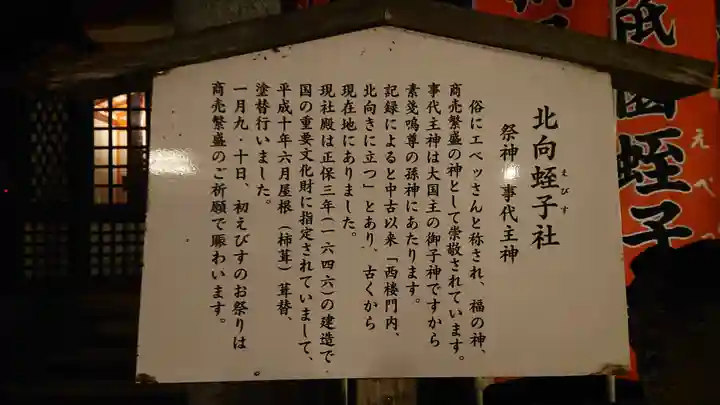 北向蛭子社
えびす
祭神 事代主神
俗にエベッさんと称され、福の神、
商売繁盛の神として崇敬されています。
事代主神は大国主の御子神ですから
素戔嗚尊の孫神にあたります。
記録によると中古以来「西楼門内、
北向きに立つ」とあり、古くから
現在地にありました。
現社殿は正保三年(一六四六)の建造で、
国の重要文化財に指定されていまして、
平成十年六月屋根(柿葺)葺替、
塗替行いました。
一月九・十日、初えびすのお祭りは
商売繁盛のご祈願で賑わいます。
祇園蛭子
えべ